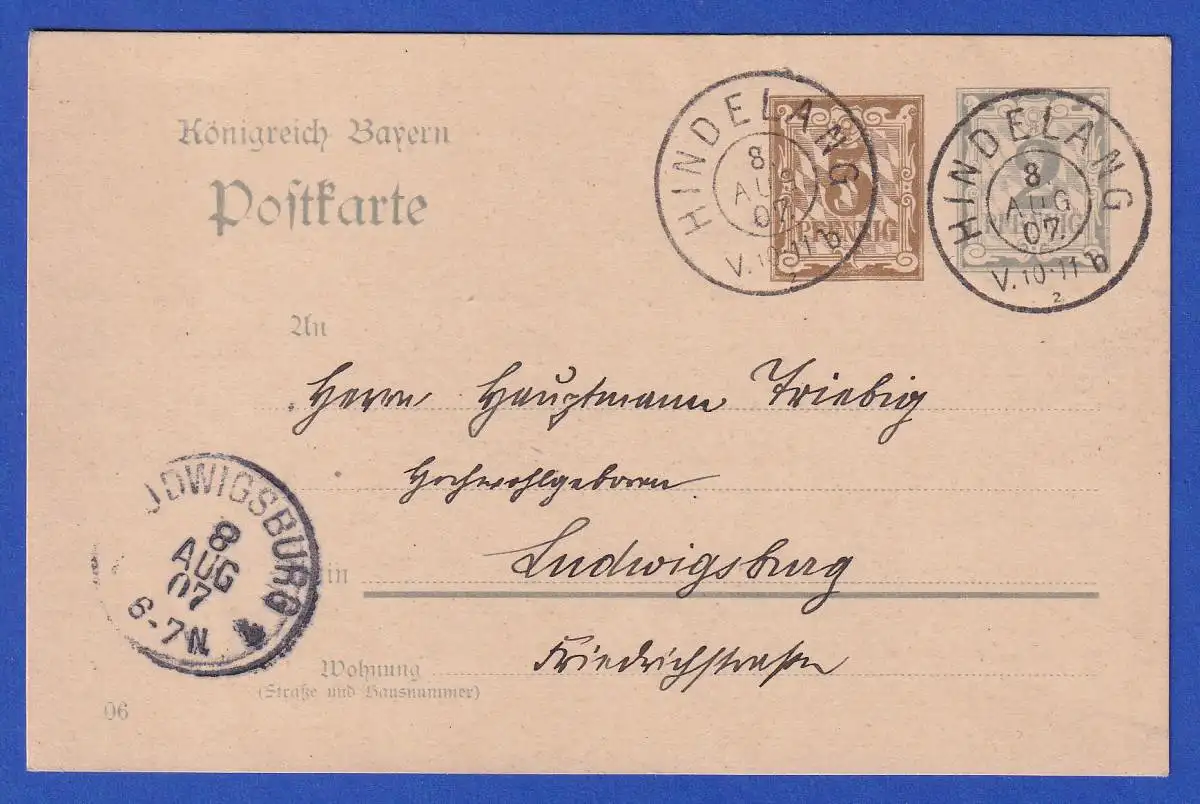 Königreich Bayern
Postkarte
HINDELANG
8.
AUG
07.
V.10-11 b
2
3
PFENNIG
HINDELANG
8.
AUG
07.
V.10-11 b
2
2
PFENNIG
An
Herrn Hauptmann Triebig
Hochwohlgeboren
in Ludwigsburg
Friedrichstrasse
LUDWIGSBURG
8
AUG
07
6-7N
Wohnung
(Straße und Hausnummer)
06